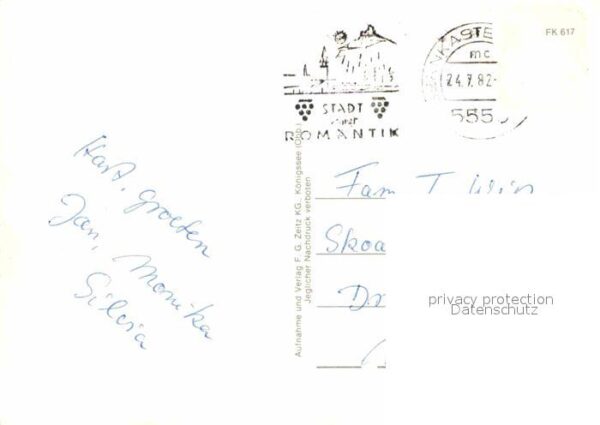 FK 617
STADT
der
ROMANTIK
NKASTE
mc
24.7.82-
555
Hart. groeten
Jan, Monika
Silvia
Aufnahme und Verlag F. G. Zeitz KG., Königssee (Obb.)
Jeglicher Nachdruck verboten
Fam T
Skoa
Dr
privacy protection
Datenschutz